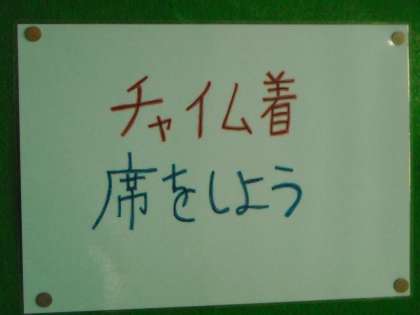 チャイム着
席をしよう